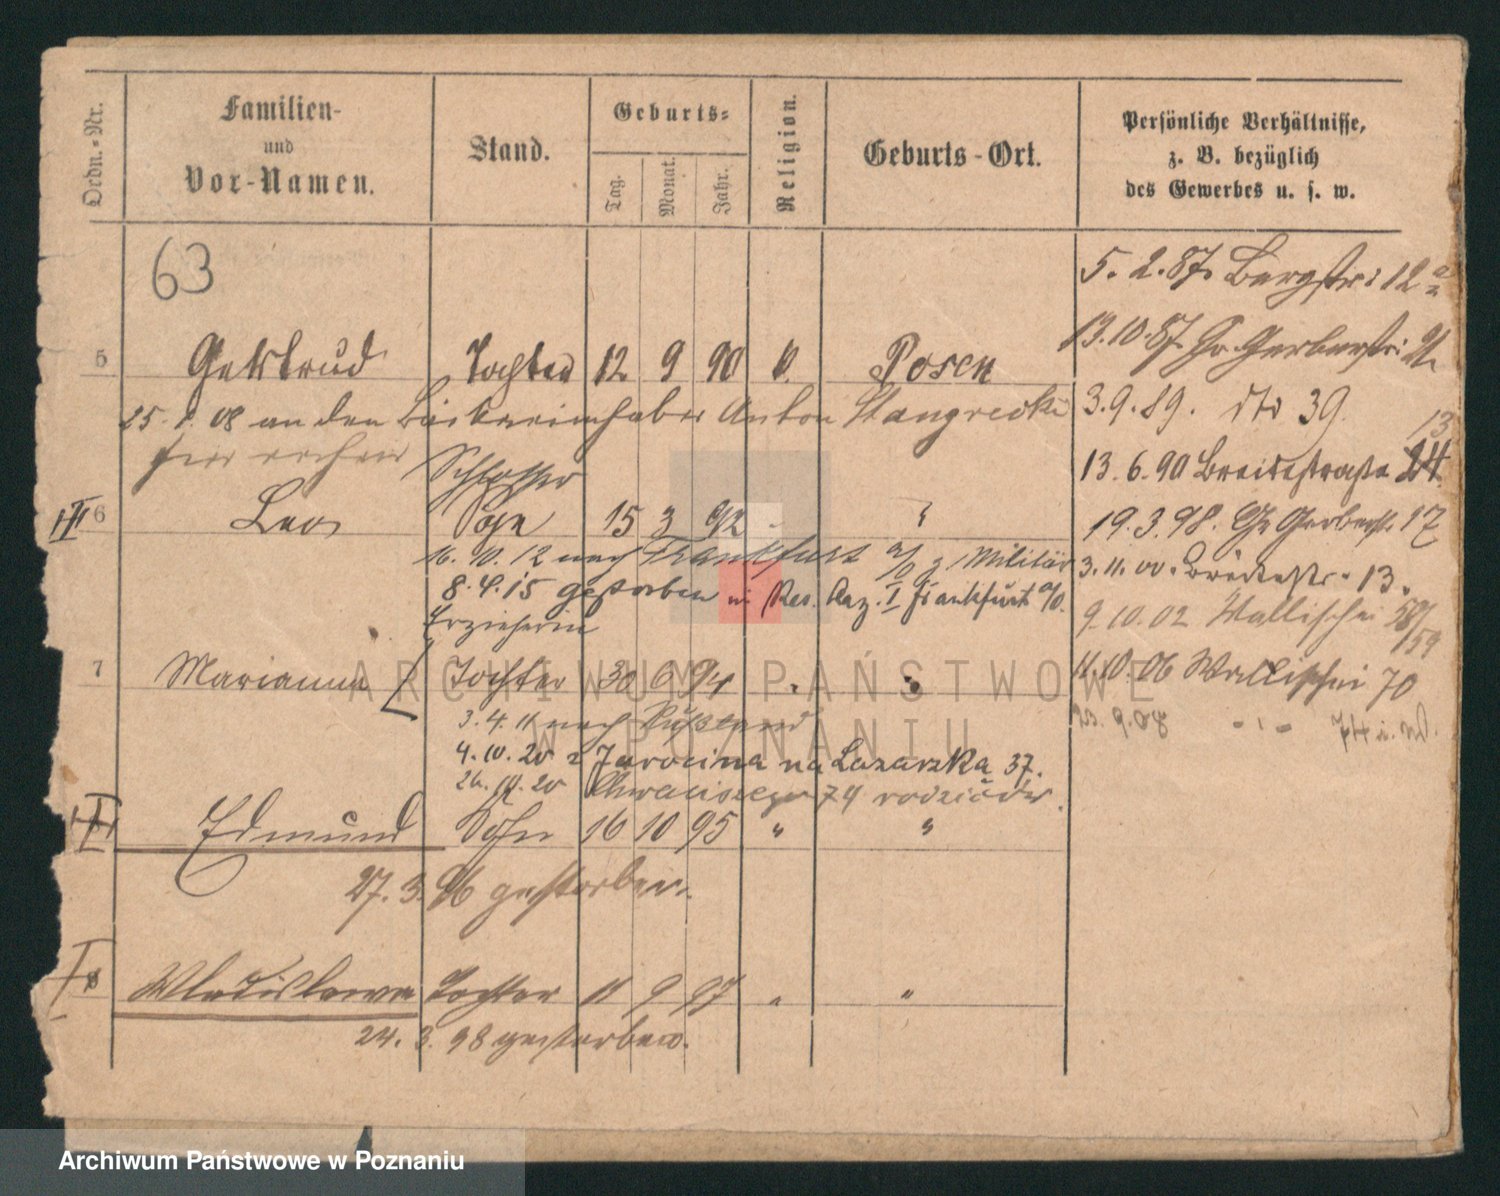 Ordn.-Nr.
Familien-
und
Vor-Namen.
Stand.
Geburts-
Tag.
Monat.
Jahr.
Religion.
Geburts-Ort.
Persönliche Verhältnisse,
z. B. bezüglich
des Gewerbes u. s. w.
63
5. 2. 87. Bergstr: 12 a
13.10.87 Gr. Gerberstr:
5 Gertrud Tochter 12 9 90 k. Posen
3.9.89. dto 39.
08 an den Bäckereiinhaber Anton Stangrecki
13
13.6.90 Breitestraße 24
Schlosser
6 Leo Sohn 15 3 92 "
19.3.98. Gr Gerberstr. 17
16.10.12 nach Frankfurt a/O z Militär
3.11.00. Breitestr. 13.
8.4.15 gestorben in Res. Laz. I Frankfurt a/O.
9.10.02 Wallischei 58/59
Erzieherin
7 Marianna Tochter 30 6 94 " "
11.10.06 Wallischei 70
3.4.11 nach Rußland
9.08 - " - 74
4.10.20 z Jarocina na Lazarzka 37.
20 74 rodziców.
Edmund Sohn 16 10 95 " "
27.3.96 gestorben.
8 Wladislawa Tochter 11 9 97 " "
24.3.98 gestorben.
ARCHIWUM PAŃSTWOWE
W POZNANIU
Archiwum Państwowe w Poznaniu